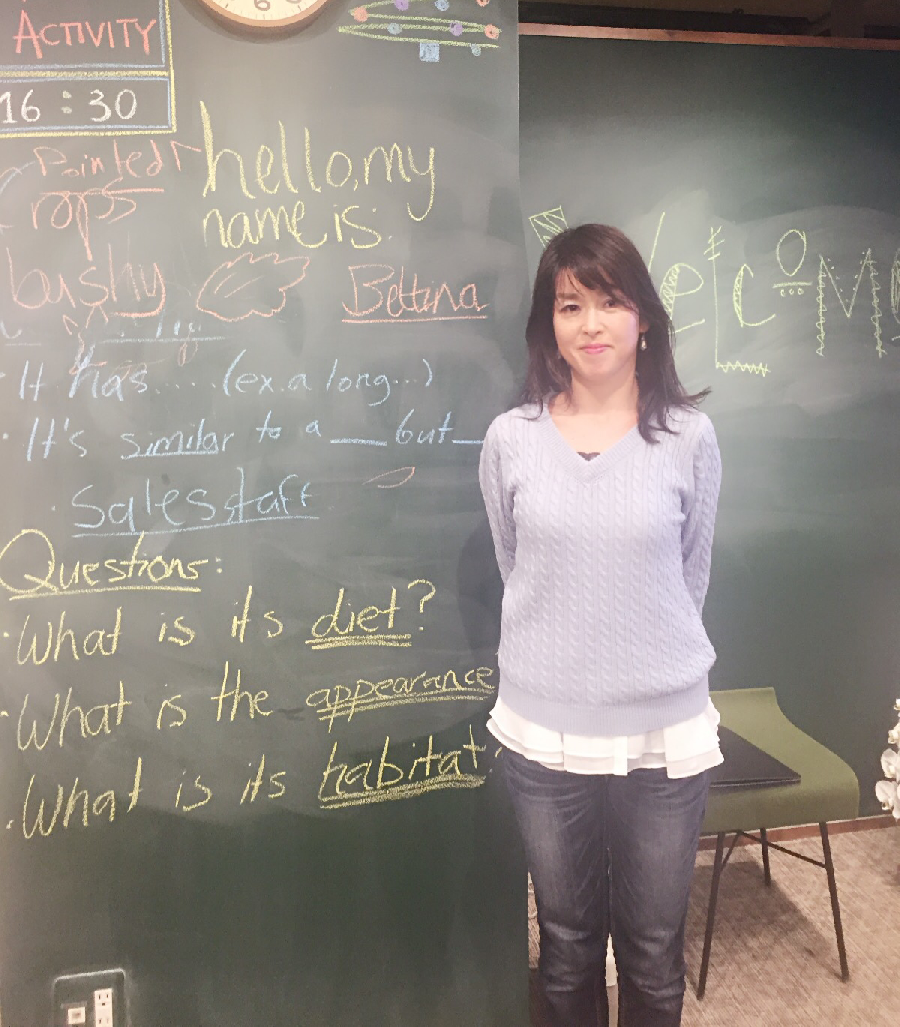 ACTIVITY
16:30
hello, my
name is:
Pointed
bushy
Bettina
· It has..... (ex. a long...)
· It's similar to a ___ but ___
· Sales staff
Questions:
· What is its diet?
· What is the appearance
· What is its habitat?
WelcoMe